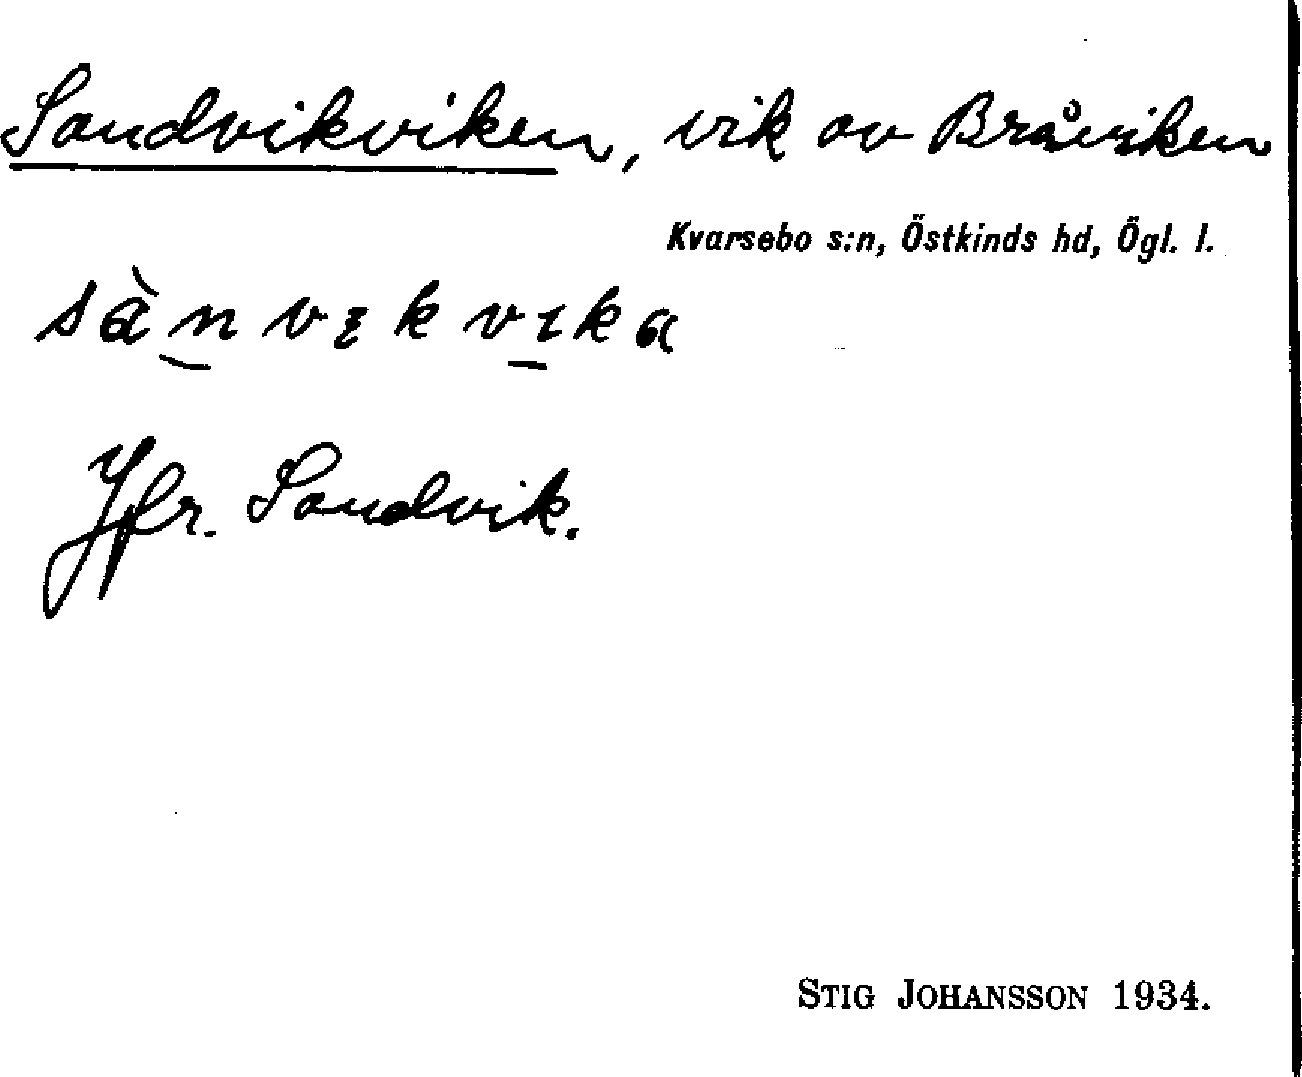 Sandvikviken, vik av Bråviken
Kvarsebo s:n, Östkinds hd, Ögl. l.
Jfr. Sandvik.
STIG JOHANSSON 1934.